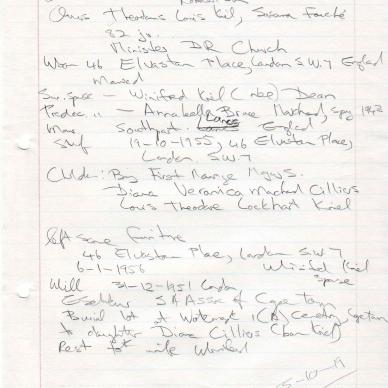 Ouers Theodorus Louis Kiel, Susara Fouché
82 jo.
Minister DR Church
Woon 46 Elvaston Place, London S.W.7 England
Married
Sur. spse - Winifred Kriel (nee) Dean
Predec. " - Annabella Bruce
Mar. Southport Lancs England
Sterf 19-10-1955, 46 Elvaston Place,
London S.W.7
Children: By First Marriage
Diana Veronica Machard Cilliers
Louis Theodore Lockhart Kriel
left some furniture
46 Elvaston Place, London S.W.7
6-1-1956 Winifred Kriel
spouse
Will 31-12-1951 London
Eksekuteur S A Assoc of Cape Town
Burial lot at Woltemade 1 (CA) Cemetery, Capetown
to daughter Diana Cilliers (born Kriel)
Rest to wife Winifred
5-10-19